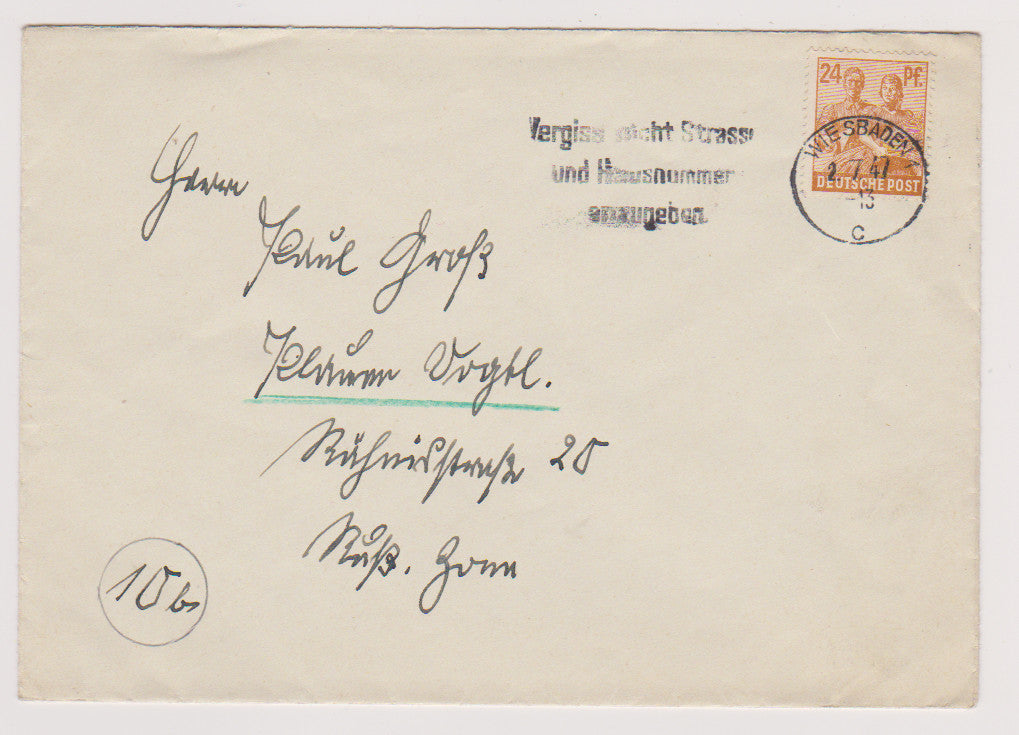 24 Pf.
DEUTSCHE POST
WIESBADEN
2.7.47
-13
c
Vergiss nicht Strasse
und Hausnummer
anzugeben
Herrn
Paul Groß
Plauen Vogtl.
Rähnisstraße 20
Ruß. Zone
10b